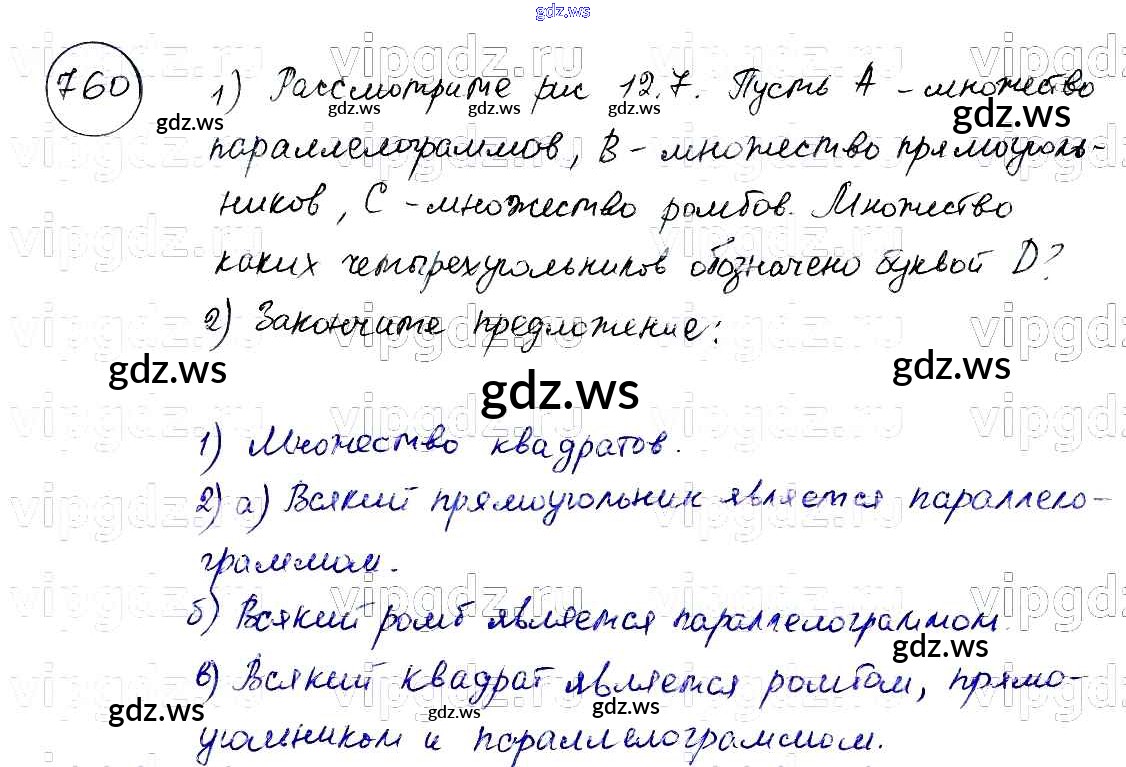 gdz.ws
760
1) Рассмотрите рис 12.7. Пусть A - множество
параллелограммов, B - множество прямоуголь-
ников, C - множество ромбов. Множество
каких четырехугольников обозначено буквой D?
2) Закончите предложение:
1) Множество квадратов.
2) а) Всякий прямоугольник является параллело-
граммом.
б) Всякий ромб является параллелограммом.
в) Всякий квадрат является ромбом, прямо-
угольником и параллелограммом.
vipgdz.ru
gdz.ws